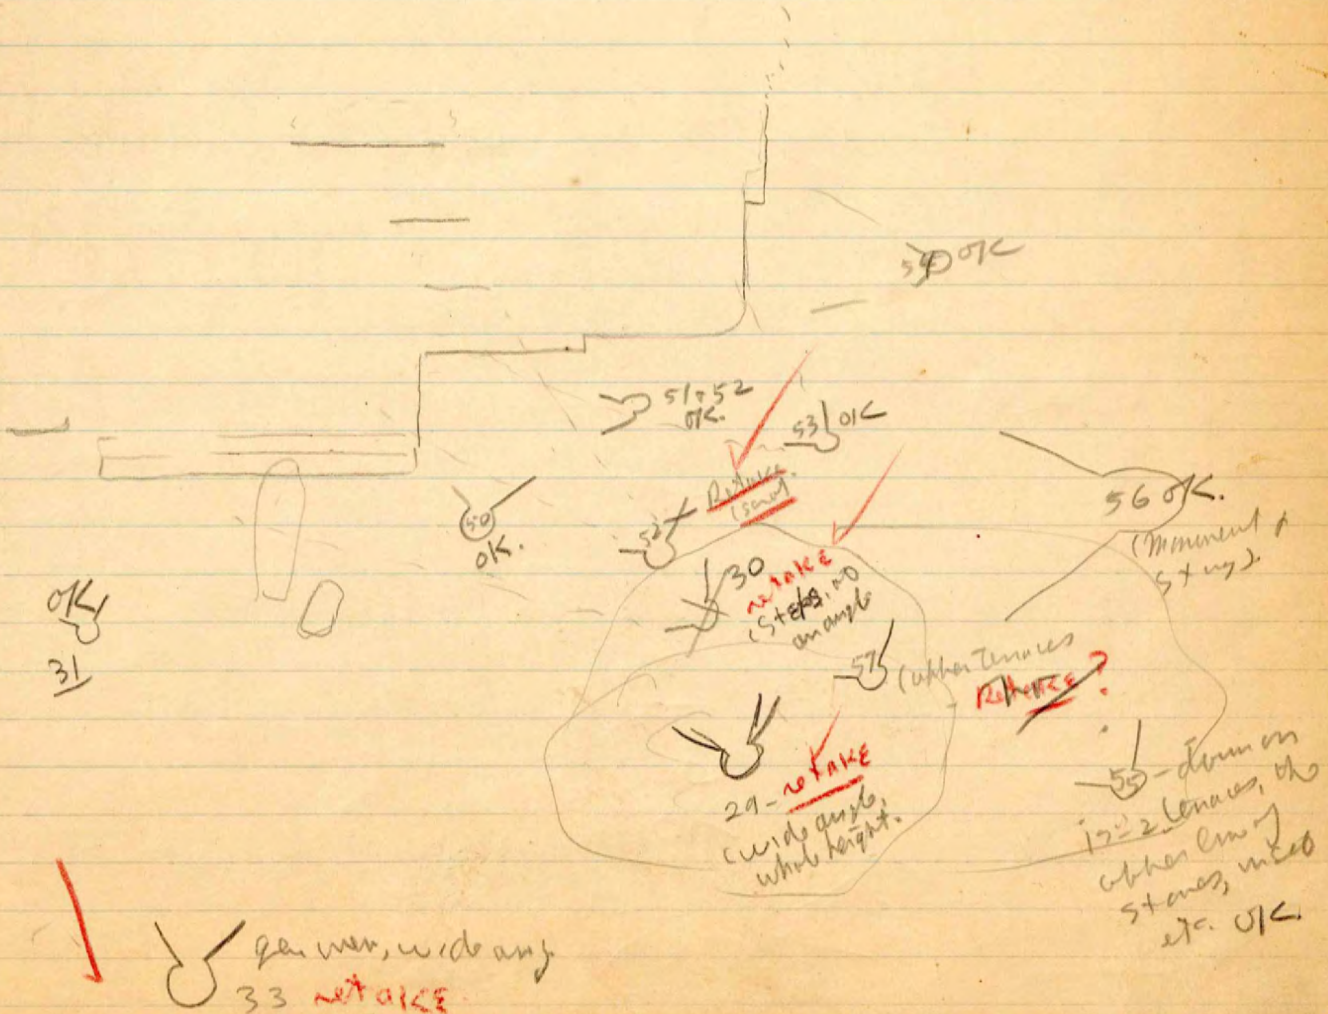 54 OK
51+52
OK.
53 OK
Retake
(same).
52
50
OK.
56 OK.
(Monument &
30
retake
(Steps, no
an angle
OK
31
57
(upper Terraces
Retake?
29- retake
(wide angle,
whole height.
55- down on
1 2 terraces, the
upper line of
stones,
etc. OK
gen view, wide ang.
33 retake